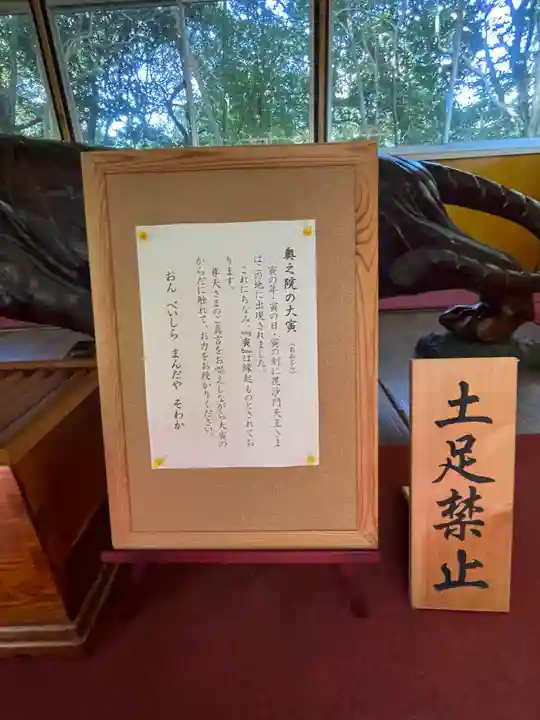 奥之院の大寅(おおとら)
寅の年・寅の日・寅の刻に毘沙門天王さま
はこの地に出現されました。
これにちなみ、『寅』は縁起ものとされてお
ります。
尊天さまのご真言をお唱えしながら大寅の
からだに触れて、お力をお授かりください。
おん べいしら まんだや そわか
土足禁止